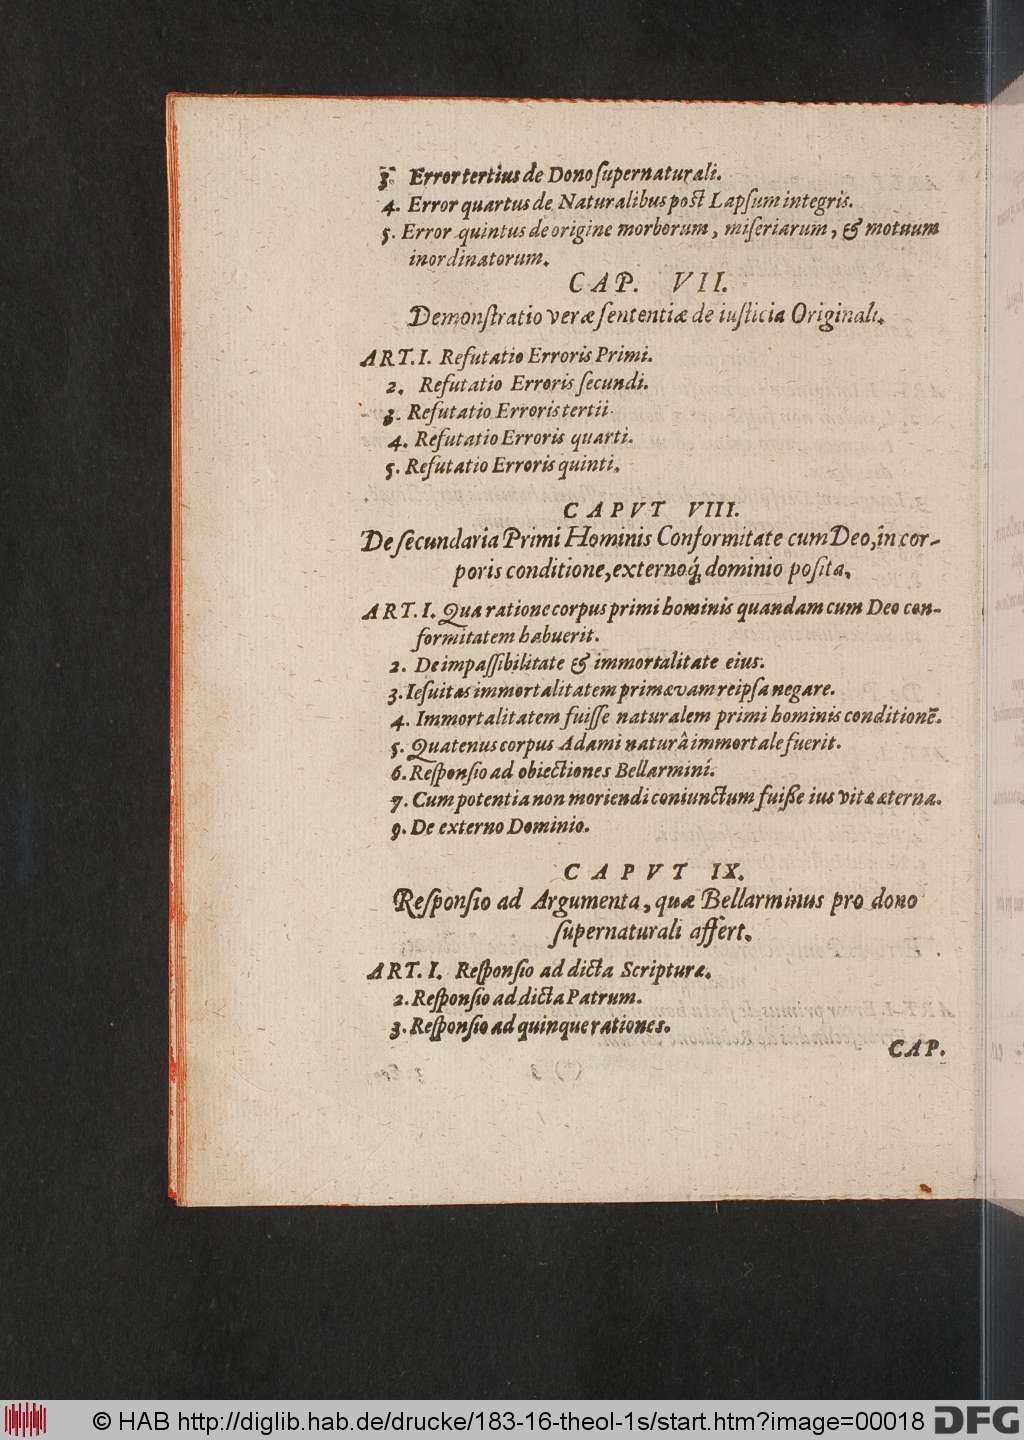 3. Error tertius de Dono ſupernaturali.
4. Error quartus de Naturalibus poſt Lapſum integris.
5. Error quintus de origine morborum, miſeriarum, & motuum
inordinatorum.
CAP. VII.
Demonſtratio veræ ſententiæ de iuſticia Originali.
ART. I. Refutatio Erroris Primi.
2. Refutatio Erroris ſecundi.
3. Refutatio Erroris tertii.
4. Refutatio Erroris quarti.
5. Refutatio Erroris quinti.
CAPVT VIII.
De ſecundaria Primi Hominis Conformitate cum Deo, in cor-
poris conditione, externoq́ dominio poſita.
ART. I. Qua ratione corpus primi hominis quandam cum Deo con-
formitatem habuerit.
2. De impaſſibilitate & immortalitate eius.
3. Ieſuitas immortalitatem primævam reipſa negare.
4. Immortalitatem fuiſſe naturalem primi hominis conditionē.
5. Quatenus corpus Adami naturâ immortale fuerit.
6. Reſponſio ad obiectiones Bellarmini.
7. Cum potentia non moriendi coniunctum fuiße ius vitæ æternæ.
9. De externo Dominio.
CAPVT IX.
Reſponſio ad Argumenta, quæ Bellarminus pro dono
ſupernaturali affert.
ART. I. Reſponſio ad dicta Scripturæ.
2. Reſponſio ad dicta Patrum.
3. Reſponſio ad quinque rationes.
CAP.
© HAB http://diglib.hab.de/drucke/183-16-theol-1s/start.htm?image=00018 DFG